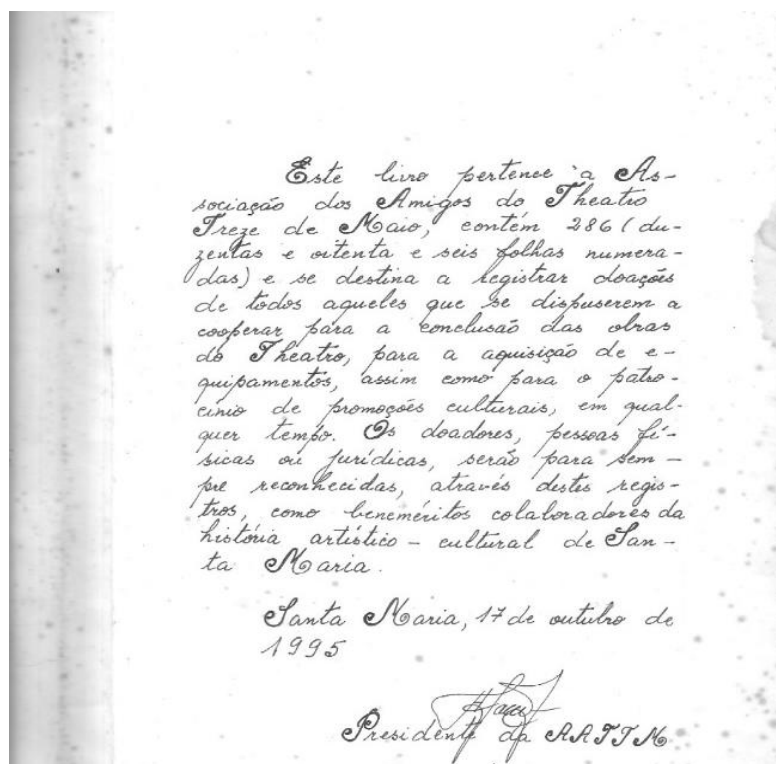 Este livro pertence à As-
sociação dos Amigos do Theatro
Treze de Maio, contém 286 (du-
zentas e oitenta e seis folhas numera-
das) e se destina a registrar doações
de todos aqueles que se dispuserem a
cooperar para a conclusão das obras
do Theatro, para a aquisição de e-
quipamentos, assim como para o patro-
cínio de promoções culturais, em qual-
quer tempo. Os doadores, pessoas fí-
sicas ou jurídicas, serão para sem-
pre reconhecidas, através destes regis-
tros, como beneméritos colaboradores da
história artístico-cultural de San-
ta Maria.
Santa Maria, 17 de outubro de
1995
Presidente da AATTM